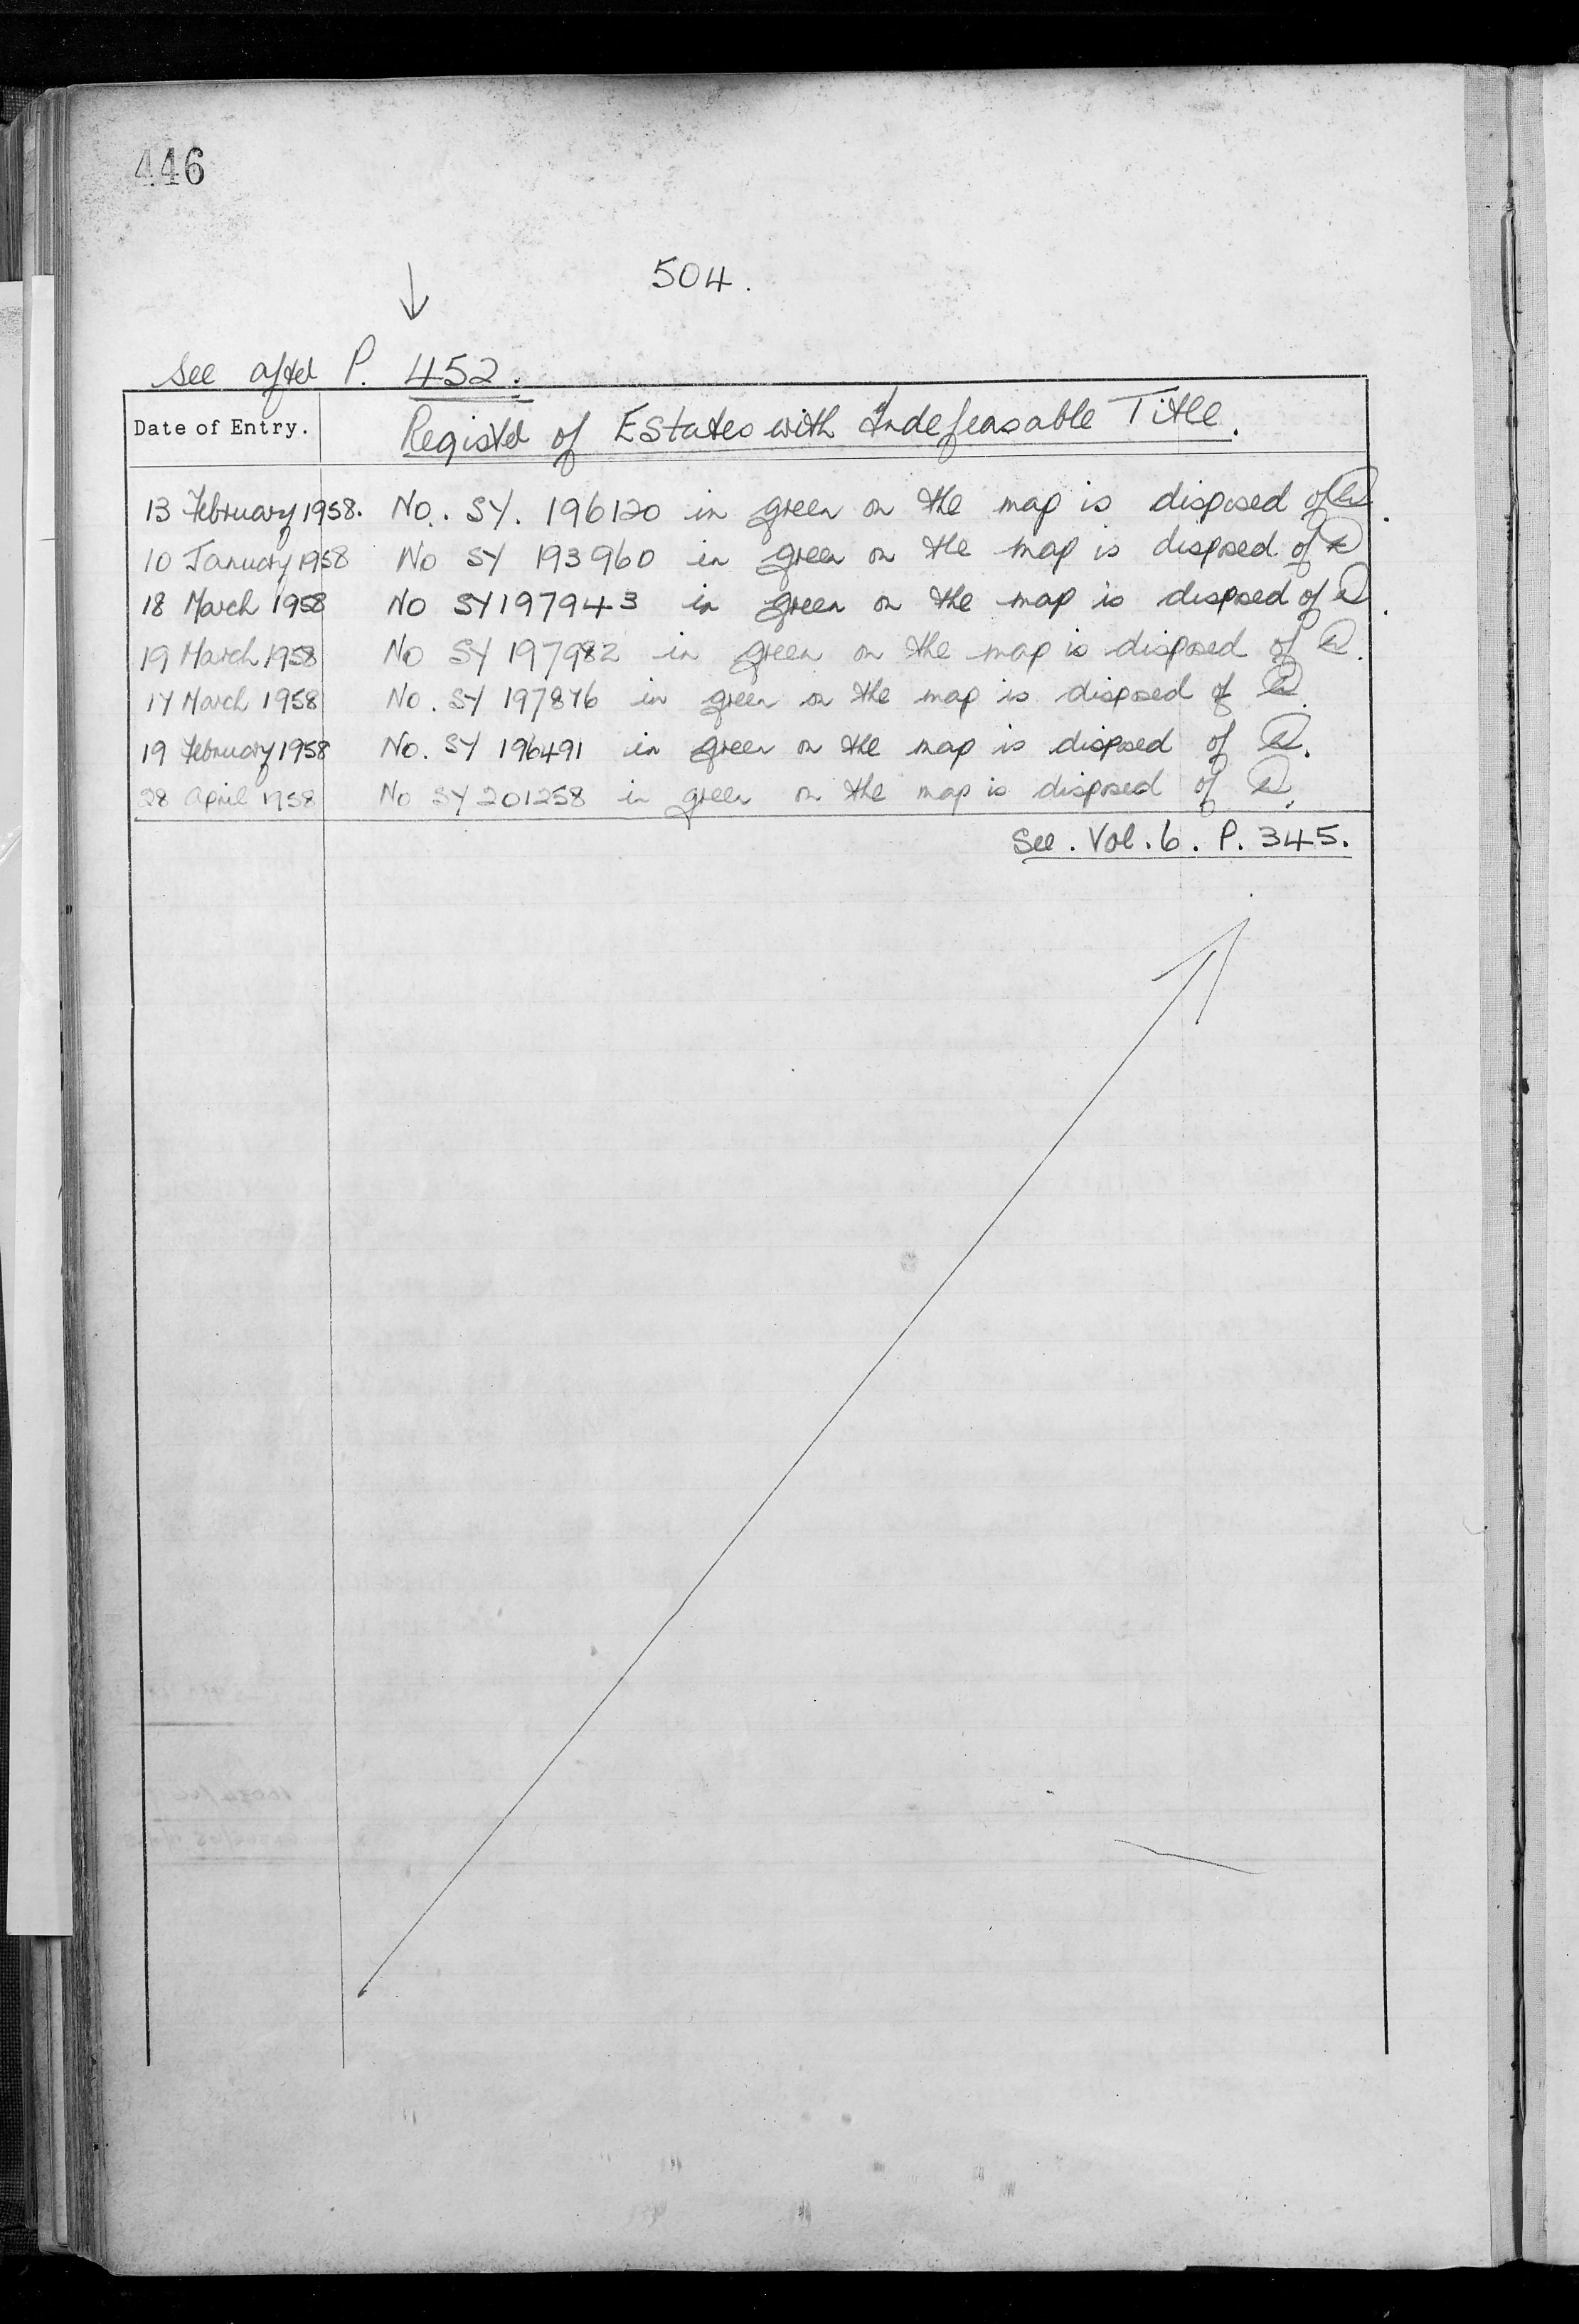 446
504.
See after P. 452.
Date of Entry. Register of Estates with Indefeasable Title.
13 February 1958. No. SY. 196120 in green on the map is disposed of
10 January 1958 No SY 193960 in green on the map is disposed of
18 March 1958 No SY197943 in green on the map is disposed of
19 March 1958 No SY 197982 in green on the map is disposed of
17 March 1958 No. SY 197876 in green on the map is disposed of
19 February 1958 No. SY 196491 in green on the map is disposed of
28 April 1958 No SY 201258 in green on the map is disposed of
See. Vol. 6. P. 345.